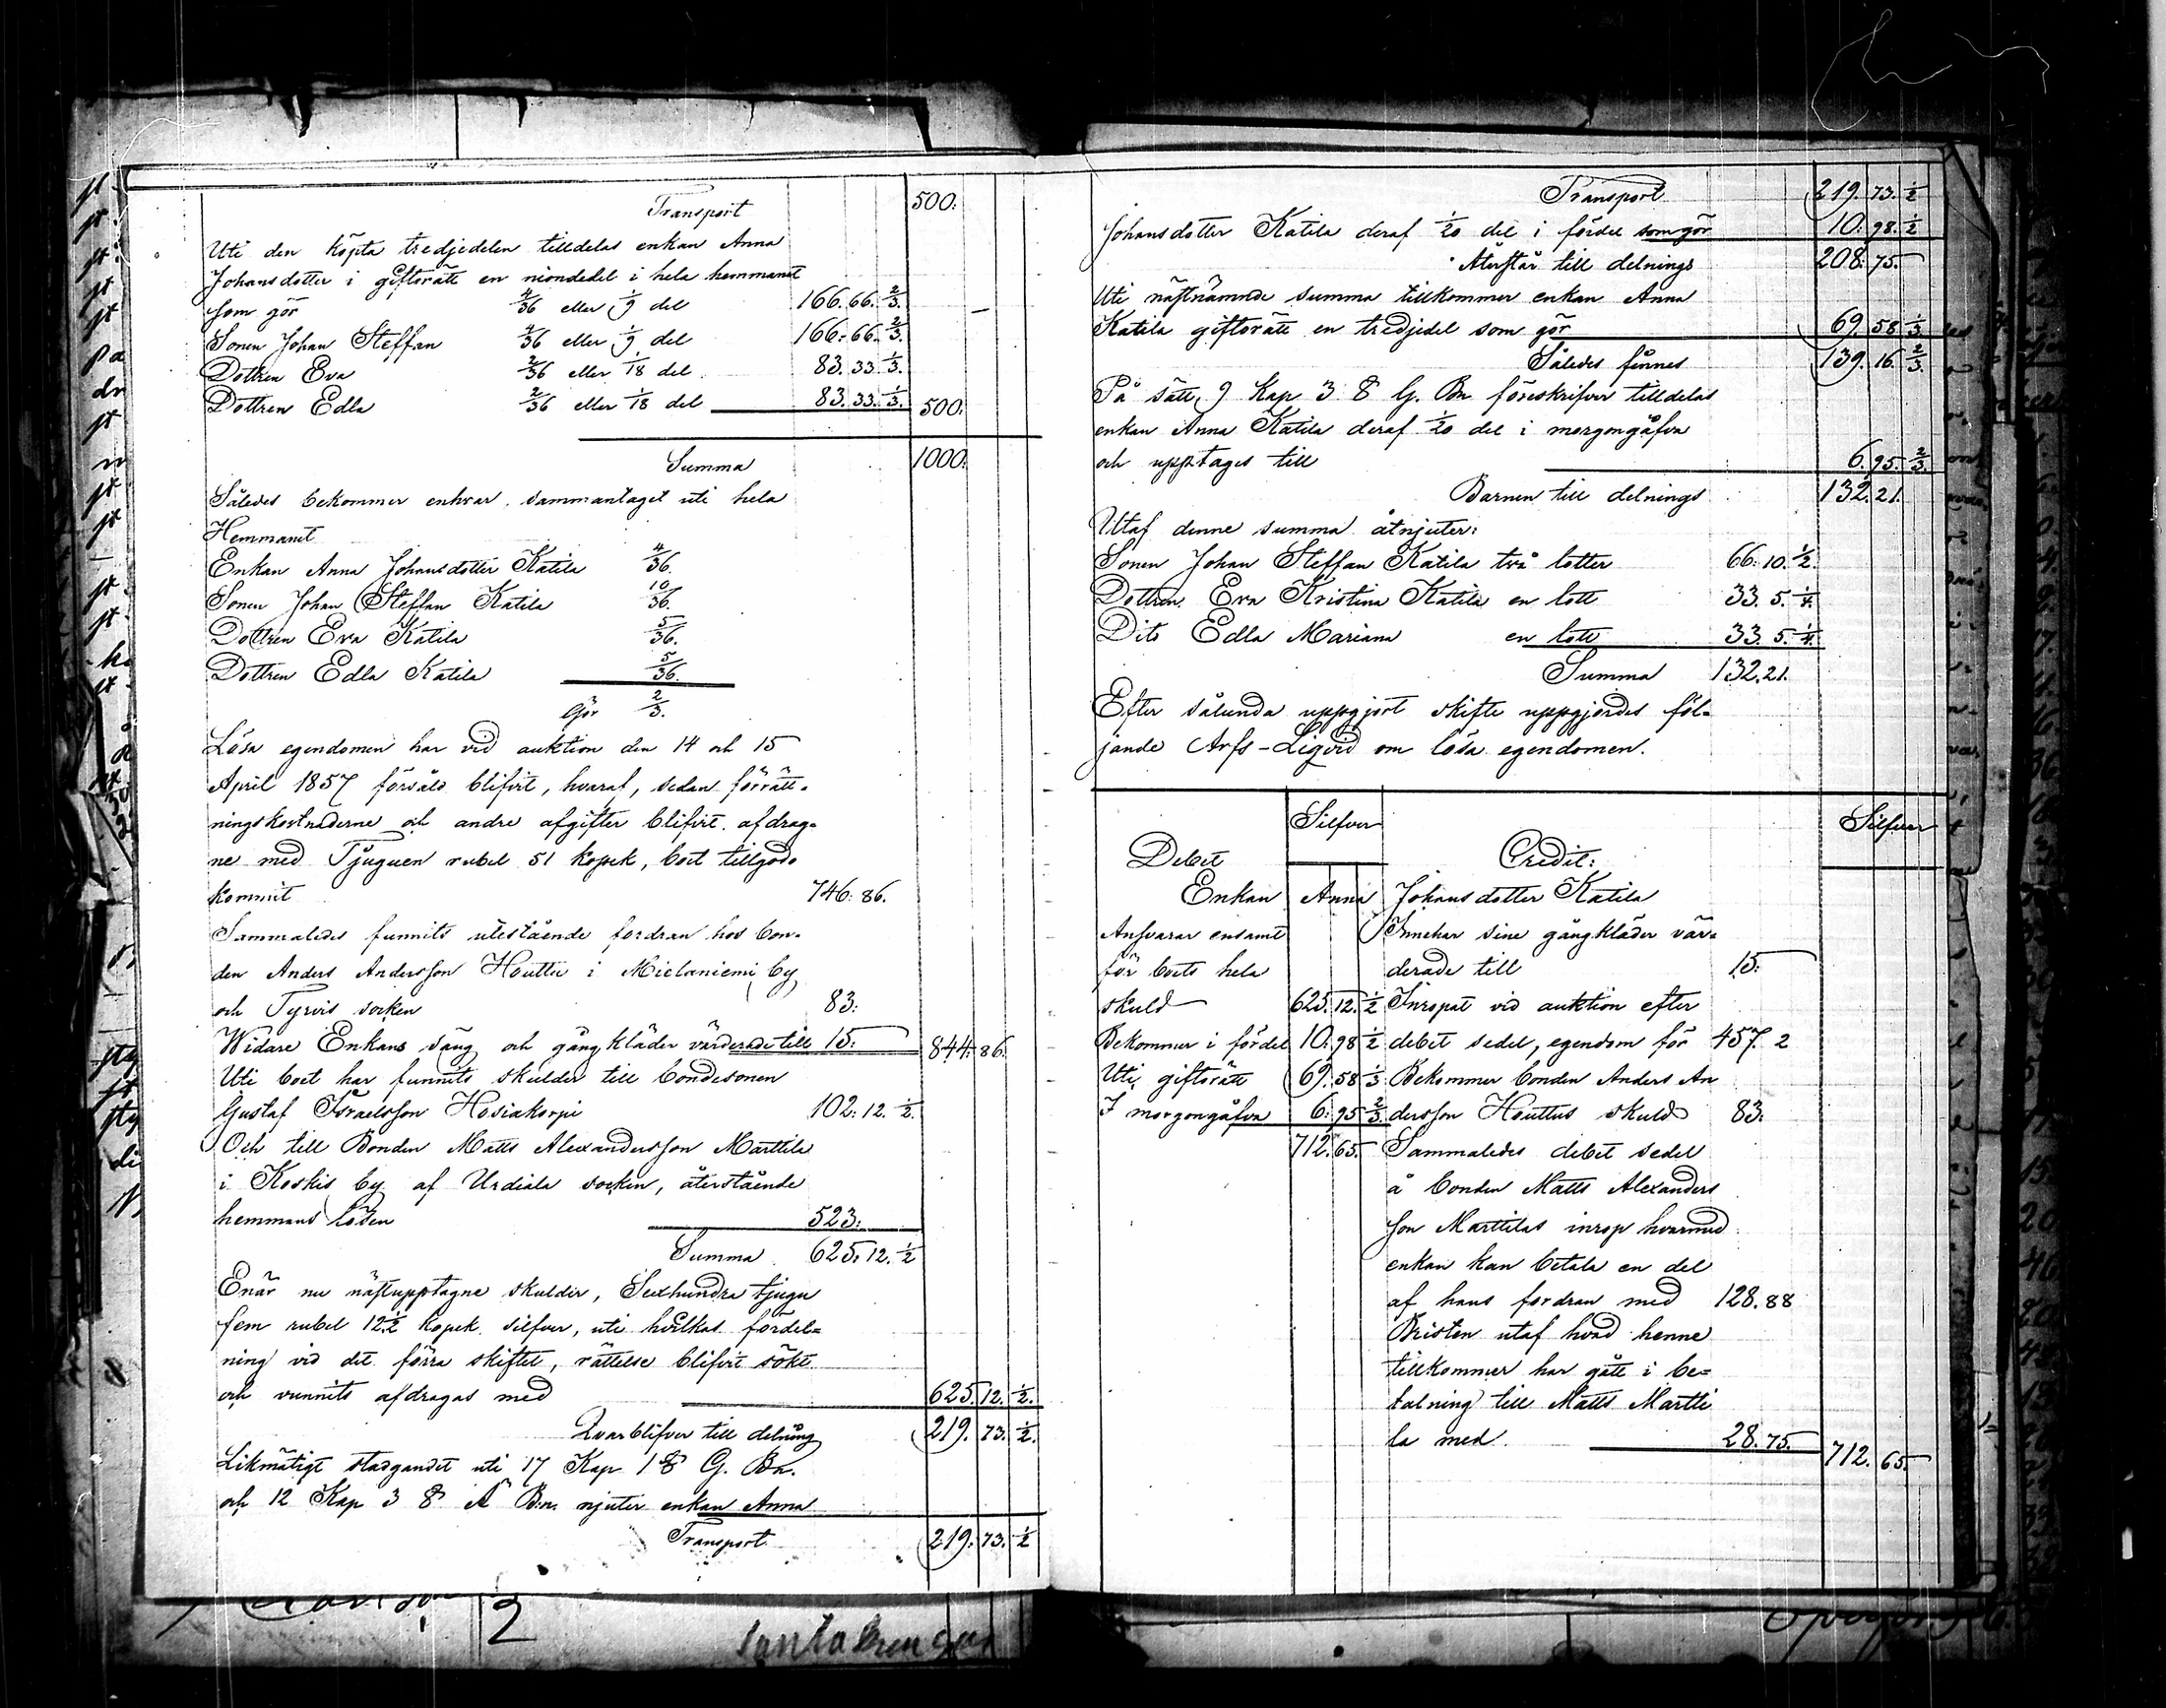 Transport 500.
Uti den köpta tredjedelen tilldelas enkan Anna
Johansdotter i giftorätt en niondedel i hela hemmanet
som gör 4/36 eller 1/9 del 166. 66. 2/3.
Sonen Johan Steffan 4/36 eller 1/9 del 166. 66. 2/3.
Dottren Eva 2/36 eller 1/18 del 83. 33. 1/3.
Dottren Edla 2/36 eller 1/18 del 83. 33. 1/3. 500.
Summa 1000.
Således bekommer enhvar sammantaget uti hela
Hemmanet
Enkan Anna Johansdotter Katila 4/36.
Sonen Johan Steffan Katila 10/36.
Dottren Eva Katila 5/36.
Dottren Edla Katila 5/36.
Gör 2/3.
Lösa egendomen har vid auktion den 14 och 15
April 1857 försåld blifvit, hvaraf, sedan förrätt-
ningskostnaderne och andre afgifter blifvit afdrag-
ne med Tjuguen rubel 51 kopek, boet tillgodo
kommit 746. 86.
Sammaledes funnits utestående fordran hos bon-
den Anders Andersson Houttu i Mielaniemi by
och Tyrvis socken 83.
Widare Enkans säng och gångkläder värderade till 15. 844. 86.
Uti boet har funnits skulder till bondesonen
Gustaf Israelsson Hosiakorpi 102. 12. 1/2.
Och till Bonden Matts Alexandersson Marttila
i Koskis by af Urdiala socken, återstående
hemmans lösen 523.
Summa 625. 12. 1/2
Enär nu nästupptagne skulder, Sexhundra tjugu
fem rubel 12 1/2 kopek silfver, uti hvilkas fördel-
ning vid det förra skiftet, rättelse blifvit sökt
och vunnits afdragas med 625. 12. 1/2.
Qvarblifver till delning 219. 73. 1/2.
Likmätigt stadgandet uti 17 Kap 1 § G. Bn.
och 12 Kap 3 § Ä Bn. njuter enkan Anna
Transport 219. 73. 1/2
Transport 219. 73. 1/2
Johansdotter Katila deraf 1/20 del i fördel som gör 10. 98. 1/2
Återstår till delnings 208. 75.
Uti nästnämnde summa tillkommer enkan Anna
Katila giftorätt en tredjedel som gör 69. 58 1/3
Således finnes 139. 16. 2/3.
På sätt 9 Kap 3 § G. Bn föreskrifver tilldelas
enkan Anna Katila deraf 1/20 del i morgongåfva
och upptages till 6. 95. 2/3.
Barnen till delnings 132. 21.
Utaf denne summa åtnjuter:
Sonen Johan Steffan Katila två lotter 66. 10. 1/2.
Dottren Eva Kristina Katila en lott 33. 5. 1/4.
Dito Edla Mariana en lott 33. 5. 1/4.
Summa 132. 21.
Efter sålunda uppgjort skifte uppgjordes föl-
jande Arfs-Liqvid om lösa egendomen.
Silfver Silfver
Debet Credit:
Enkan Anna Johansdotter Katila
Ansvarar ensamt Innehar sine gångkläder vär-
för boets hela derade till 15.
skuld 625. 12. 1/2 Inropat vid auktion efter
Bekommer i fördel 10. 98 1/2 debet sedel, egendom för 457. 2
Uti giftorätt 69. 58 1/3 Bekommer bonden Anders An
I morgongåfva 6. 95 2/3. dersson Houttus skuld 83.
712. 65. Sammaledes debet sedel
å bonden Matts Alexanders
son Marttilas inrop hvarmed
enkan kan betala en del
af hans fordran med 128. 88
Bristen utaf hvad henne
tillkommer har gått i be-
talning till Matts Martti
la med. 28. 75. 712. 65.